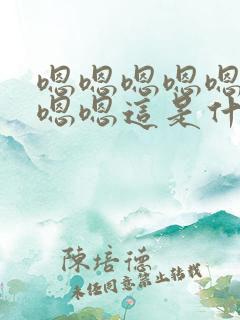 嗯嗯嗯嗯嗯
嗯嗯這是什
陳培德
未經同意禁止轉載